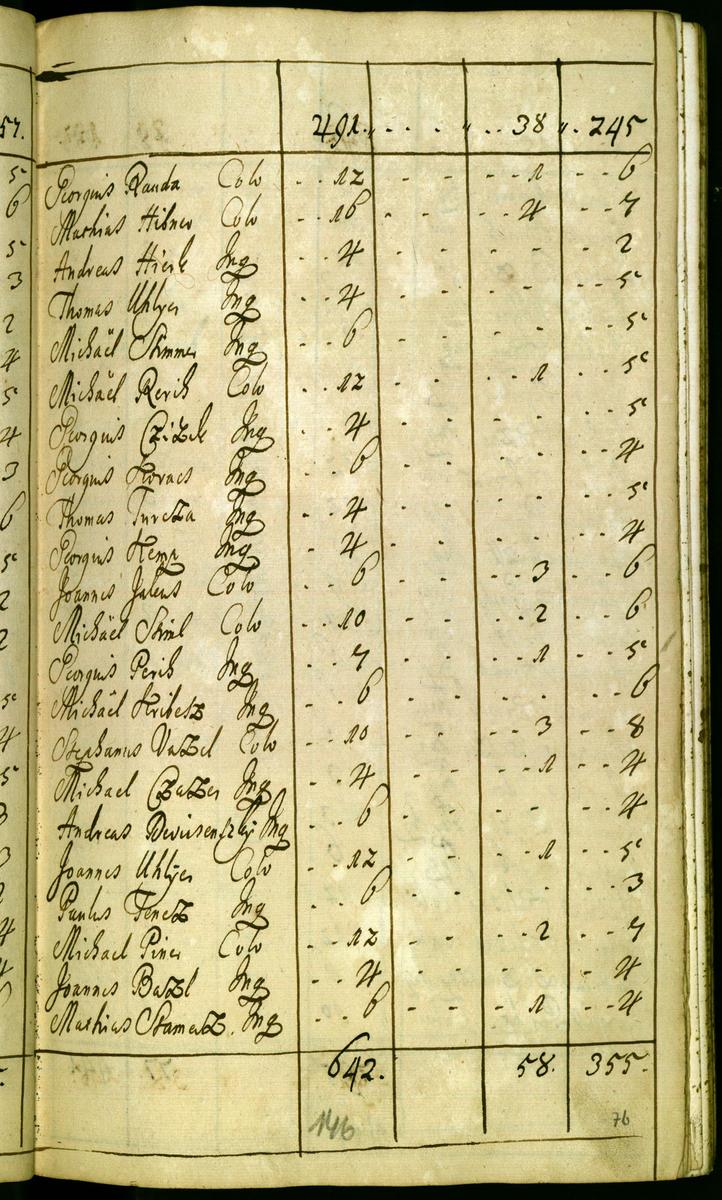 57.
491. " . . . " . . 38 " . 245
Georgius Randa Colo . . 12 - - - - 1 - - 6
Mathias Hibner Colo . . 16 - - - - 4 - - 7
Andreas Hierk Inq . . 4 - - - - - - 2
Thomas Uhlyer Inq . . 4 - - - - - - 5
Michaël Stimmer Inq . . 6 - - - - - - 5
Michaël Rerih Colo . . 12 - - - - 1 - - 5
Georgius Czizek Inq . . 4 - - - - - - 5
Georgius Kovacs Inq . . 6 - - - - - - 4
Thomas Turcza Inq . . 4 - - - - - - 5
Georgius Kemp Inq . . 4 - - - - - - 4
Joannes Julius Colo . . 6 - - - - 3 - - 6
Michaël Stinl Colo . . 10 - - - - 2 - - 6
Georgius Perih Inq . . 7 - - - - 1 - - 5
Michaël Hribetz Inq . . 6 - - - - - - 6
Stephanus Vazel Colo . . 10 - - - - 3 - - 8
Michael Czazer Inq . . 4 - - - - 1 - - 4
Andreas Inq . . 6 - - - - - - 4
Joannes Uhlyer Colo . . 12 - - - - 1 - - 5
Paulus Fenez Inq . . 6 - - - - - - 3
Michael Piner Colo . . 12 - - - - 2 - - 7
Joannes Bazl Inq . . 4 - - - - - - 4
Mathias Stamerz . Inq . . 6 - - - - 1 - - 4
642. 58. 355.
146 76